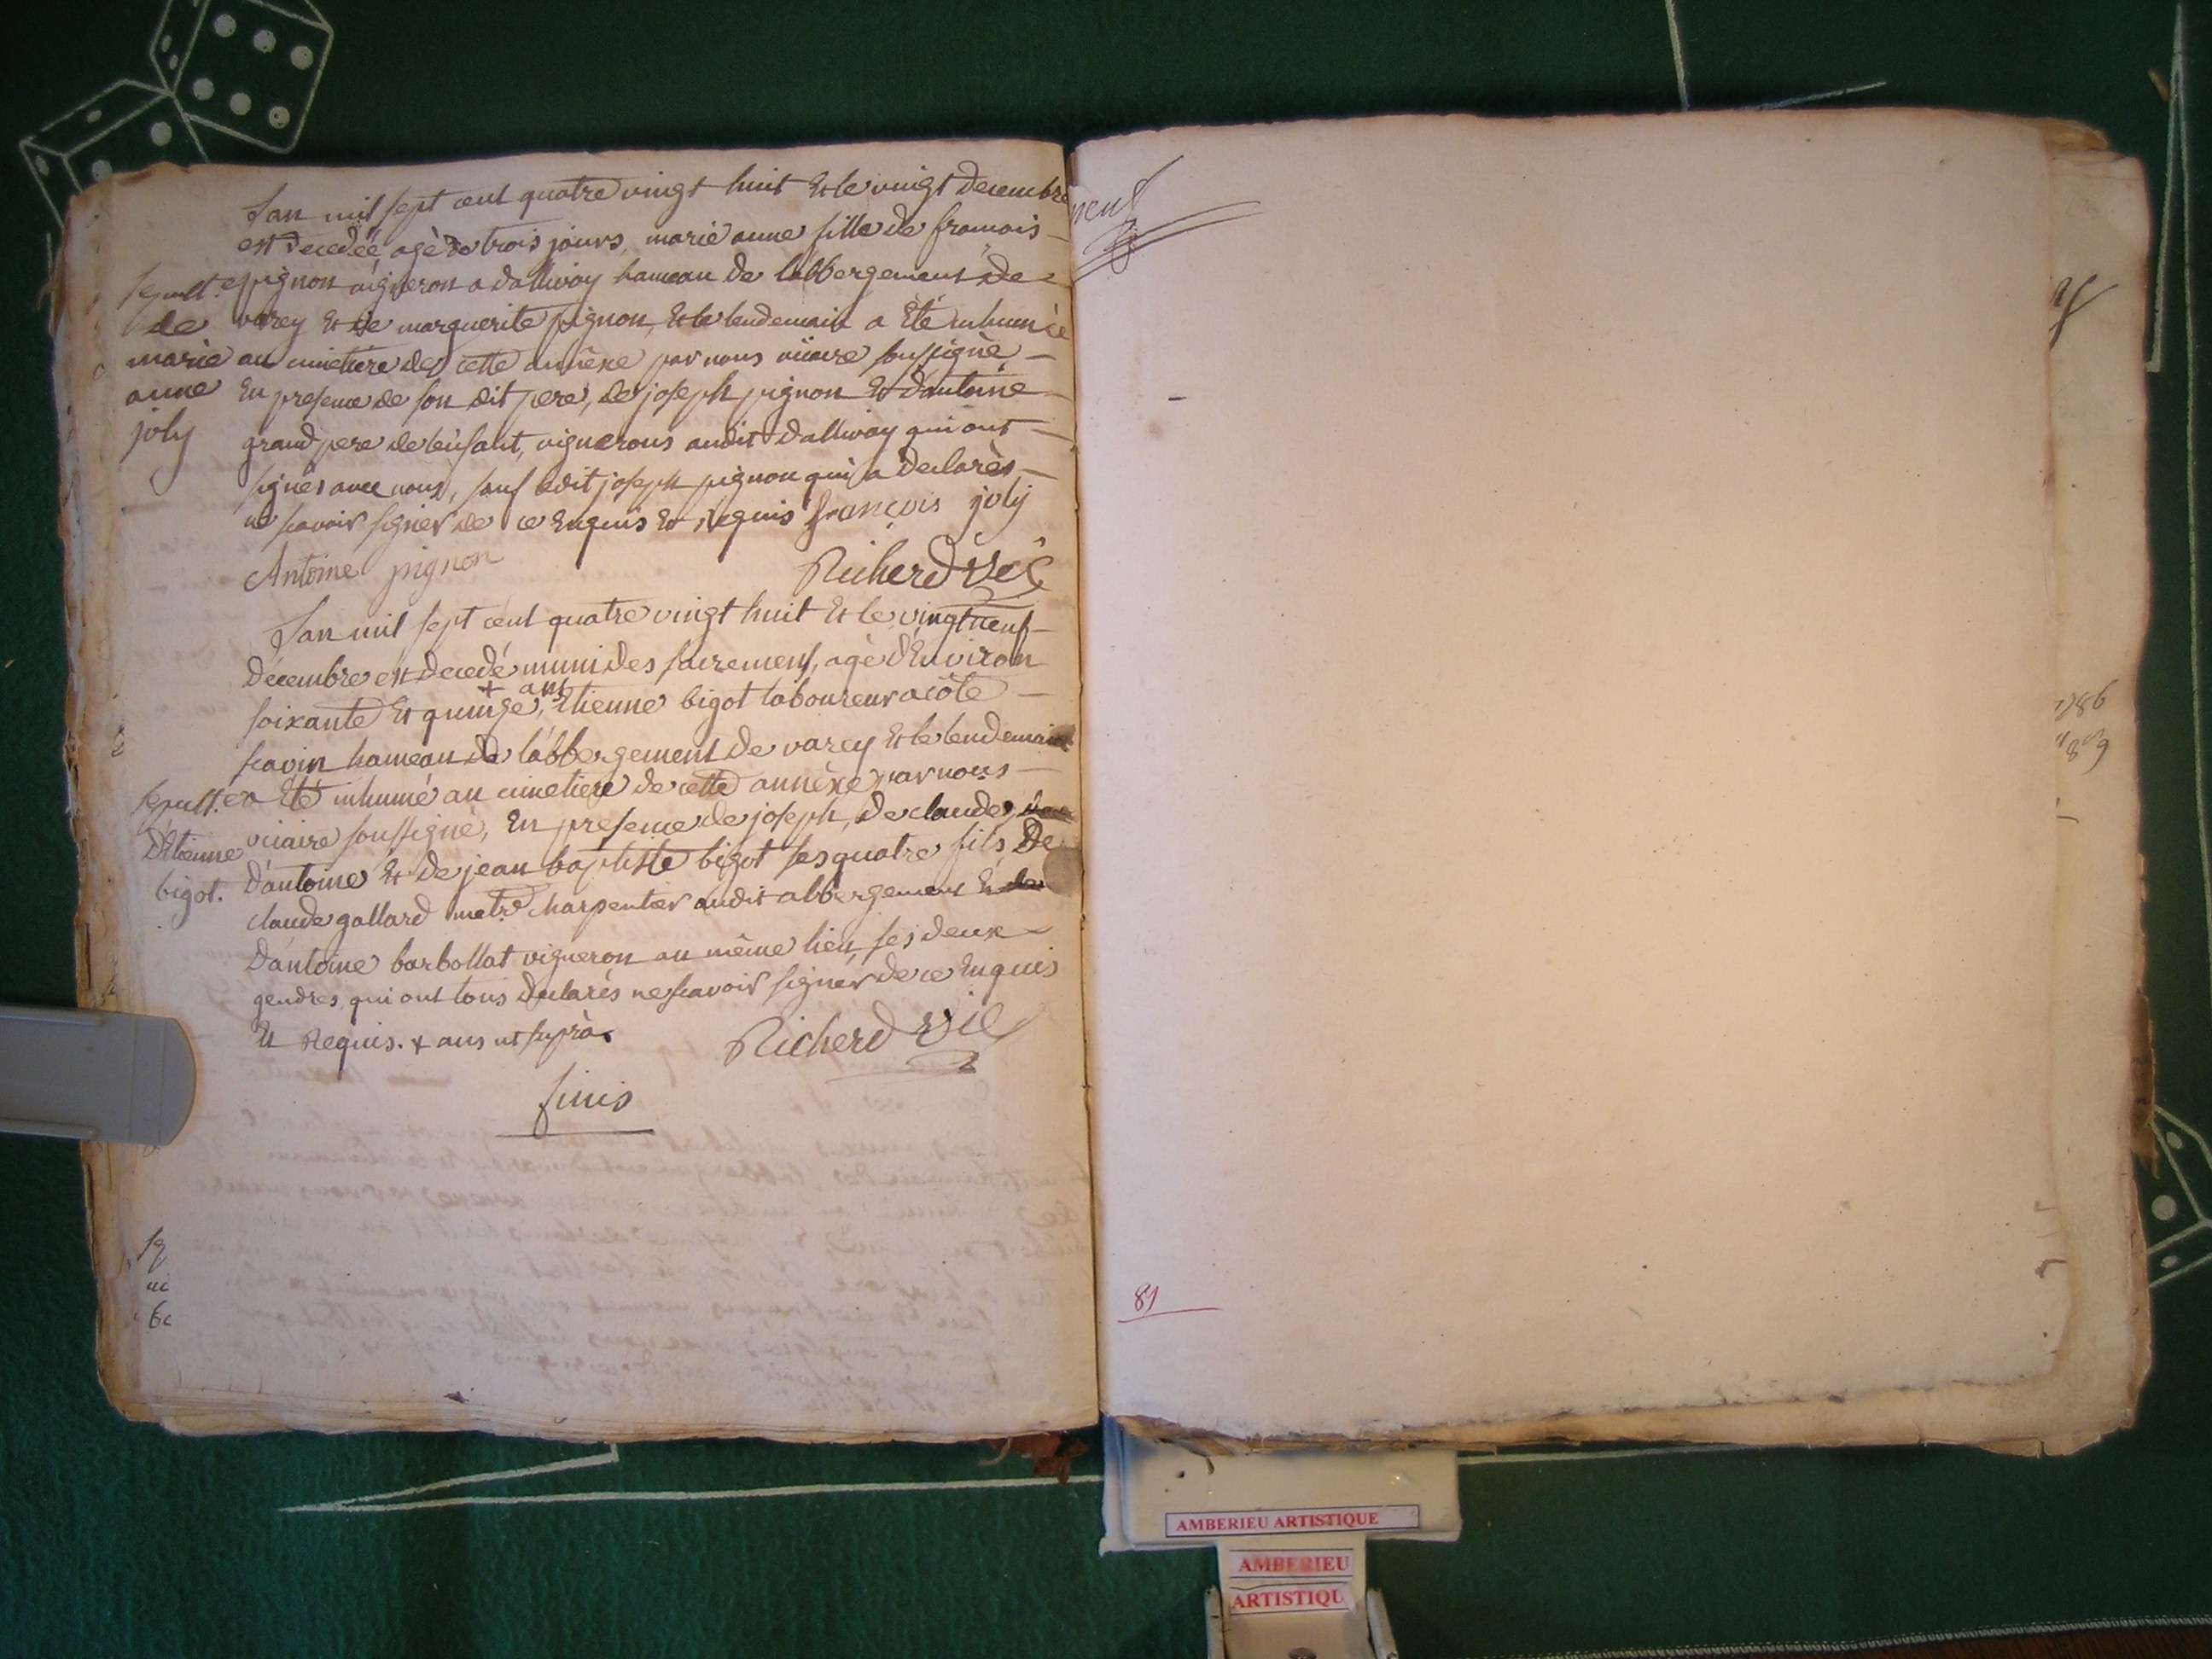 Lan mil sept cent quatre vingt huit Et le vingt decembre
est decedéé agèe de trois jours, marie anne fille de francois
pignon vigneron a dallivoy hameau de labbergement de
varey Et de marguerite pignon, Et le lendemain a Eté inhumèe
au cimetiere de cette annêxe par nous viiaire soussignè
En presence de son dit pere, de joseph pignon Et d'antoine
grand pere de l'enfant, vignerons audit dallivoy qui ont
signés avec nous, sauf ledit joseph pignon qui a declarès
ne scavoir signer de ce Enquis Et requis françois joly
Antoine pignon Richerd vic
sepult.
de
marie
anne
joly
Lan mil sept cent quatre vingt huit Et le vingt neuf
decembre est decedé muni des sacremens, agè d'Environ
soixante Et quinze, + ans Etienne bigot laboureur a côte
savin hameau de l'abbergement de varey Et le lendemain
a Eté inhumé au cimetiere de cette annèxe par nous
viiaire soussignè, En presence de joseph, de claude,
d'antoine Et de jean baptiste bigot ses quatre fils De
claude gallard metre charpentier audit abbergement Et
d'antoine barbollat vigneron au même lieu, ses deux
gendres, qui ont tous declarés ne scavoir signer de ce Enquis
Et Requis. + ans ut suprà. Richerd vic
sepult.
d'Etienne
bigot.
finis
neuf
81
AMBERIEU ARTISTIQUE
AMBERIEU
ARTISTIQU